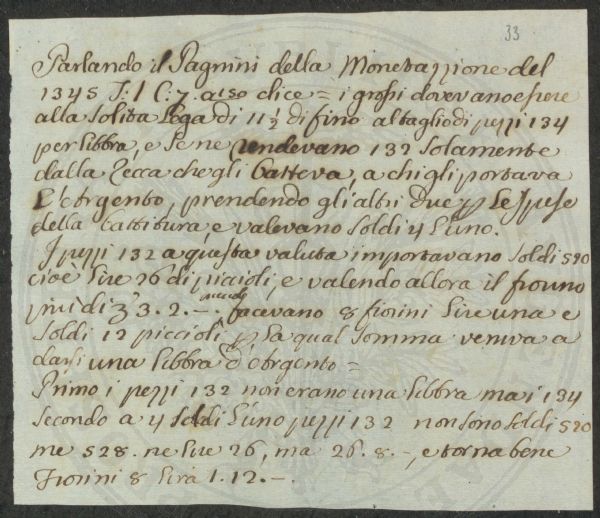 33
Parlando il Pagnini della Monetazzione del
1345 T. 1 C. 7. a 150 dice = i grossi dovevano essere
alla solita Lega di 11 1/2 di fino al taglio di pezzi 134
per libbra, e se ne rendevano 132 solamente
dalla Zecca che gli batteva, a chi gli portava
L'Argento, prendendo gl'altri due p Le Spese
della battitura, e valevano Soldi 4 l'uno.
I pezzi 132 a questa valuta importavano Soldi 520
cioè Lire 26 di piccioli, e valendo allora il fiorino
più di 3. 2. -. facevano 8 fiorini Lire una e
Soldi 12 piccioli, p La qual Somma veniva a
darsi una libbra d'Argento =
Primo i pezzi 132 non erano una libbra ma i 134
Secondo a 4 Soldi l'uno pezzi 132 non sono Soldi 520
me 528. ne Lire 26, ma 26. 8. -, e torna bene
Fiorini 8 Lira 1. 12. -.